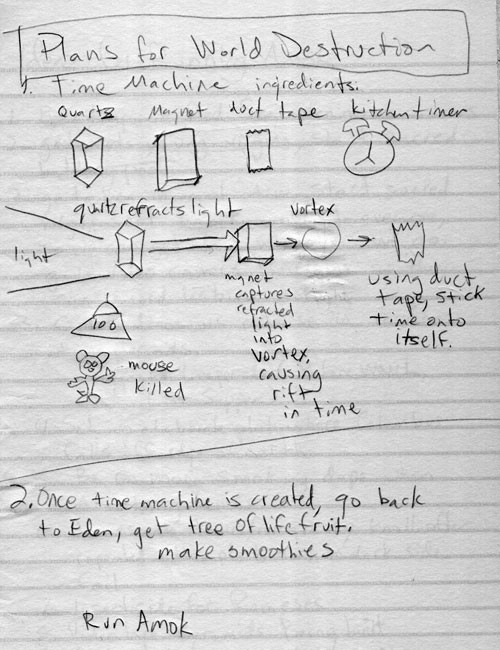 Plans for World Destruction
1. Time Machine ingredients:
Quartz Magnet duct tape kitchen timer
quartz refracts light vortex
light
magnet
captures
refracted
light
into
vortex,
causing
rift
in time
using duct
tape, stick
time onto
itself.
100
mouse
killed
2. Once time machine is created, go back
to Eden, get tree of life fruit.
make smoothies
Run Amok